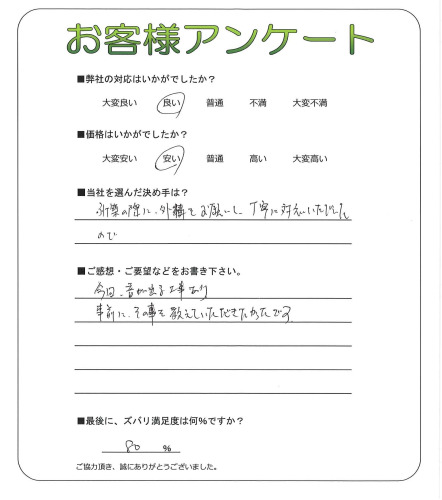 お客様アンケート
■弊社の対応はいかがでしたか?
大変良い 良い 普通 不満 大変不満
■価格はいかがでしたか?
大変安い 安い 普通 高い 大変高い
■当社を選んだ決め手は?
新築の際に、外構をお願いし、丁寧に対応いただいた
ので
■ご感想・ご要望などをお書き下さい。
今回、音が出る工事あり
事前に、その事を教えていただきたかったです
■最後に、ズバリ満足度は何%ですか?
80 %
ご協力頂き、誠にありがとうございました。